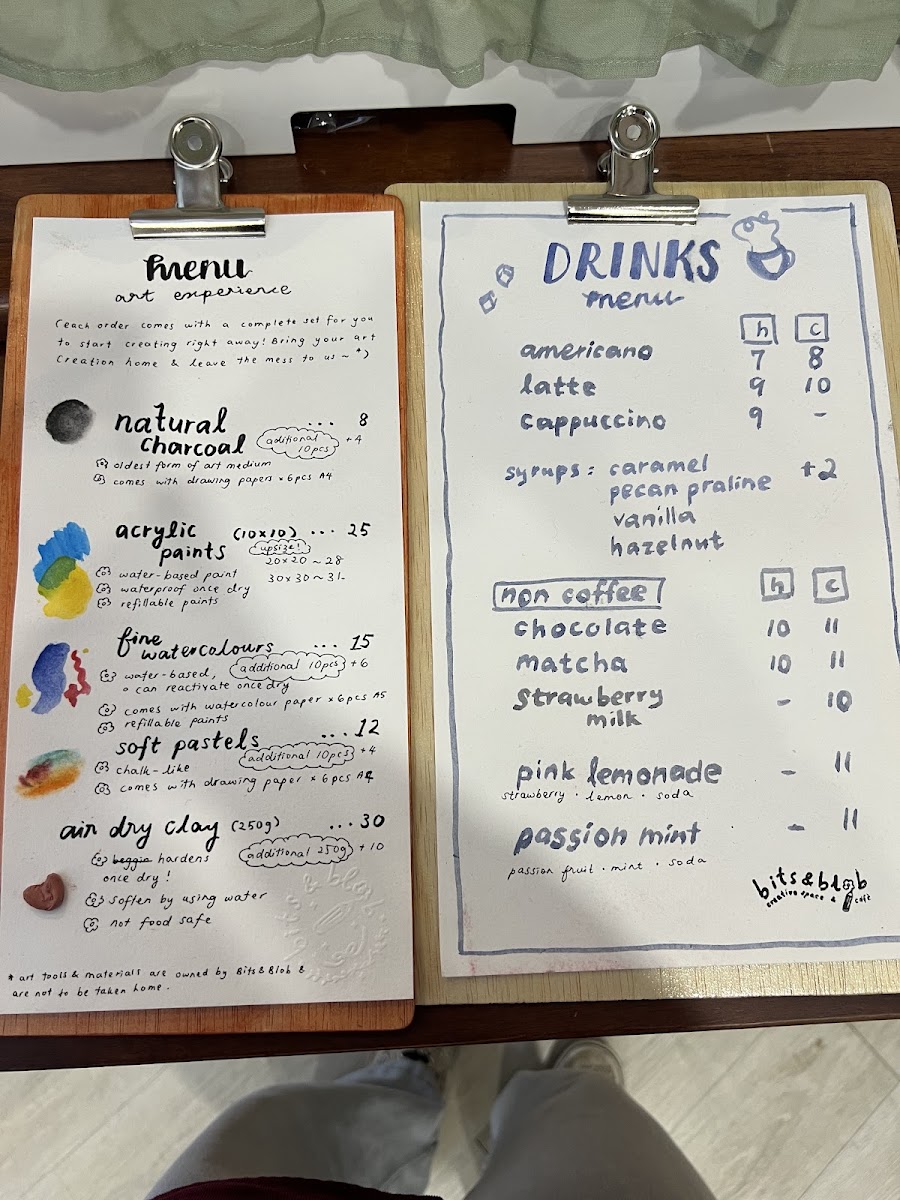 menu
art experience
(each order comes with a complete set for you
to start creating right away! Bring your art
Creation home & leave the mess to us ~ *)
natural ... 8
charcoal aditional 10pcs +4
oldest form of art medium
comes with drawing papers × 6pcs A4
acrylic (10x10) ... 25
paints upsize!
20x20 ~ 28
30x30 ~ 31
water-based paint
waterproof once dry
refillable paints
fine
watercolours ... 15
water-based, additional 10pcs +6
can reactivate once dry
comes with watercolour paper × 6pcs A5
refillable paints
soft pastels ... 12
chalk-like additional 10pcs +4
comes with drawing paper × 6pcs A4
air dry clay (250g) ... 30
hardens additional 250g +10
once dry!
soften by using water
not food safe
* art tools & materials are owned by Bits & Blob &
are not to be taken home.
DRINKS
menu
h c
americano 7 8
latte 9 10
cappuccino 9 -
syrups: caramel +2
pecan praline
vanilla
hazelnut
non coffee h c
chocolate 10 11
matcha 10 11
strawberry - 10
milk
pink lemonade - 11
strawberry · lemon · soda
passion mint - 11
passion fruit · mint · soda
bits & blob
creative space & café